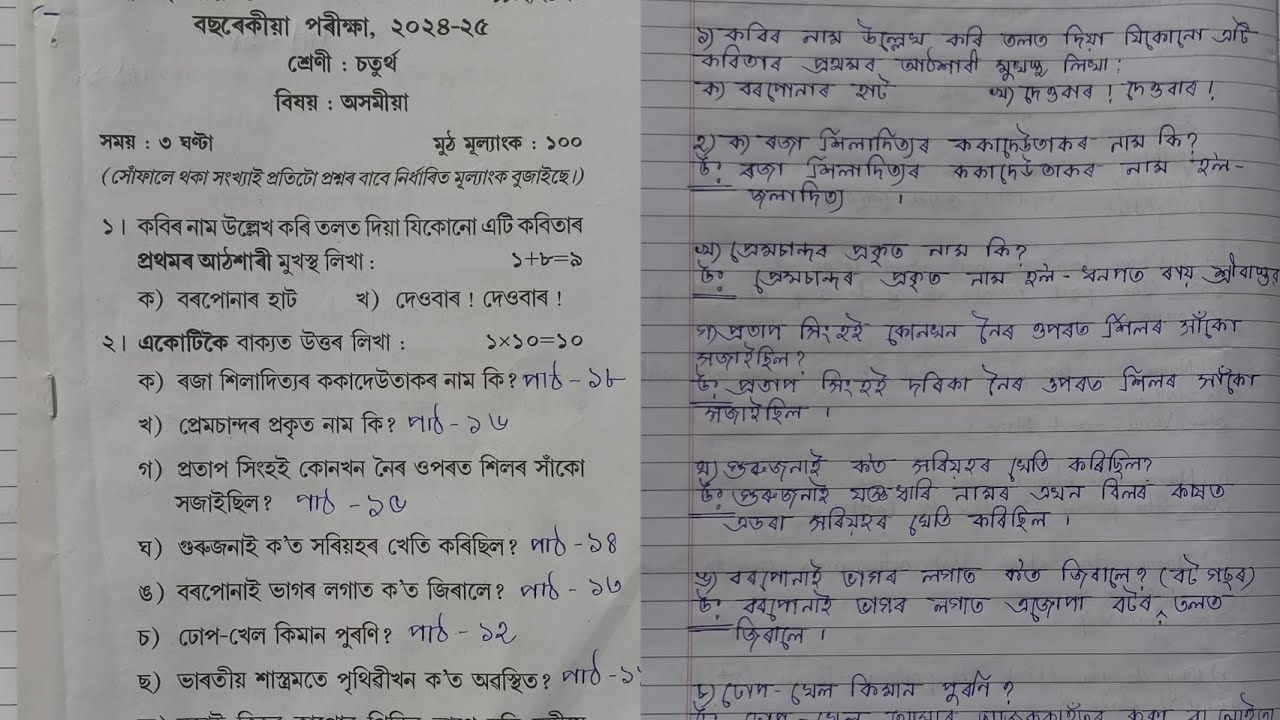 বছৰেকীয়া পৰীক্ষা, ২০২৪-২৫
শ্ৰেণী : চতুৰ্থ
বিষয় : অসমীয়া
সময় : ৩ ঘণ্টা মুঠ মূল্যাংক : ১০০
(সোঁফালে থকা সংখ্যাই প্ৰতিটো প্ৰশ্নৰ বাবে নিৰ্ধাৰিত মূল্যাংক বুজাইছে।)
১। কবিৰ নাম উল্লেখ কৰি তলত দিয়া যিকোনো এটি কবিতাৰ
প্ৰথমৰ আঠশাৰী মুখস্থ লিখা : ১+৮=৯
ক) বৰপোনাৰ হাট খ) দেওবাৰ ! দেওবাৰ !
২। একোটিকৈ বাক্যত উত্তৰ লিখা : ১×১০=১০
ক) ৰজা শিলাদিত্যৰ ককাদেউতাকৰ নাম কি? পাঠ - ১৮
খ) প্ৰেমচান্দৰ প্ৰকৃত নাম কি? পাঠ - ১৬
গ) প্ৰতাপ সিংহই কোনখন নৈৰ ওপৰত শিলৰ সাঁকো
সজাইছিল? পাঠ - ১৫
ঘ) গুৰুজনাই ক'ত সৰিয়হৰ খেতি কৰিছিল? পাঠ - ১৪
ঙ) বৰপোনাই ভাগৰ লগাত ক'ত জিৰালে? পাঠ - ১৩
চ) ঢোপ-খেল কিমান পুৰণি? পাঠ - ১২
ছ) ভাৰতীয় শাস্ত্ৰমতে পৃথিৱীখন ক'ত অৱস্থিত? পাঠ
১) কবিৰ নাম উল্লেখ কৰি তলত দিয়া যিকোনো এটি
কবিতাৰ প্ৰথমৰ আঠশাৰী মুখস্থ লিখা :
ক) বৰপোনাৰ হাট খ) দেওবাৰ ! দেওবাৰ !
২) ক) ৰজা শিলাদিত্যৰ ককাদেউতাকৰ নাম কি?
উ: ৰজা শিলাদিত্যৰ ককাদেউতাকৰ নাম হ'ল-
জলাদিত্য ।
খ) প্ৰেমচান্দৰ প্ৰকৃত নাম কি?
উ: প্ৰেমচান্দৰ প্ৰকৃত নাম হ'ল - ধনপত ৰায় শ্ৰীবাস্তৱ
গ) প্ৰতাপ সিংহই কোনখন নৈৰ ওপৰত শিলৰ সাঁকো
সজাইছিল?
উ: প্ৰতাপ সিংহই দৰিকা নৈৰ ওপৰত শিলৰ সাঁকো
সজাইছিল ।
ঘ) গুৰুজনাই ক'ত সৰিয়হৰ খেতি কৰিছিল?
উ: গুৰুজনাই নামৰ এখন বিলৰ কাষত
এডৰা সৰিয়হৰ খেতি কৰিছিল ।
ঙ) বৰপোনাই ভাগৰ লগাত ক'ত জিৰালে? (বট গছৰ)
উ: বৰপোনাই ভাগৰ লগাত এজোপা বটৰ তলত
জিৰালে ।
চ) ঢোপ-খেল কিমান পুৰণি?